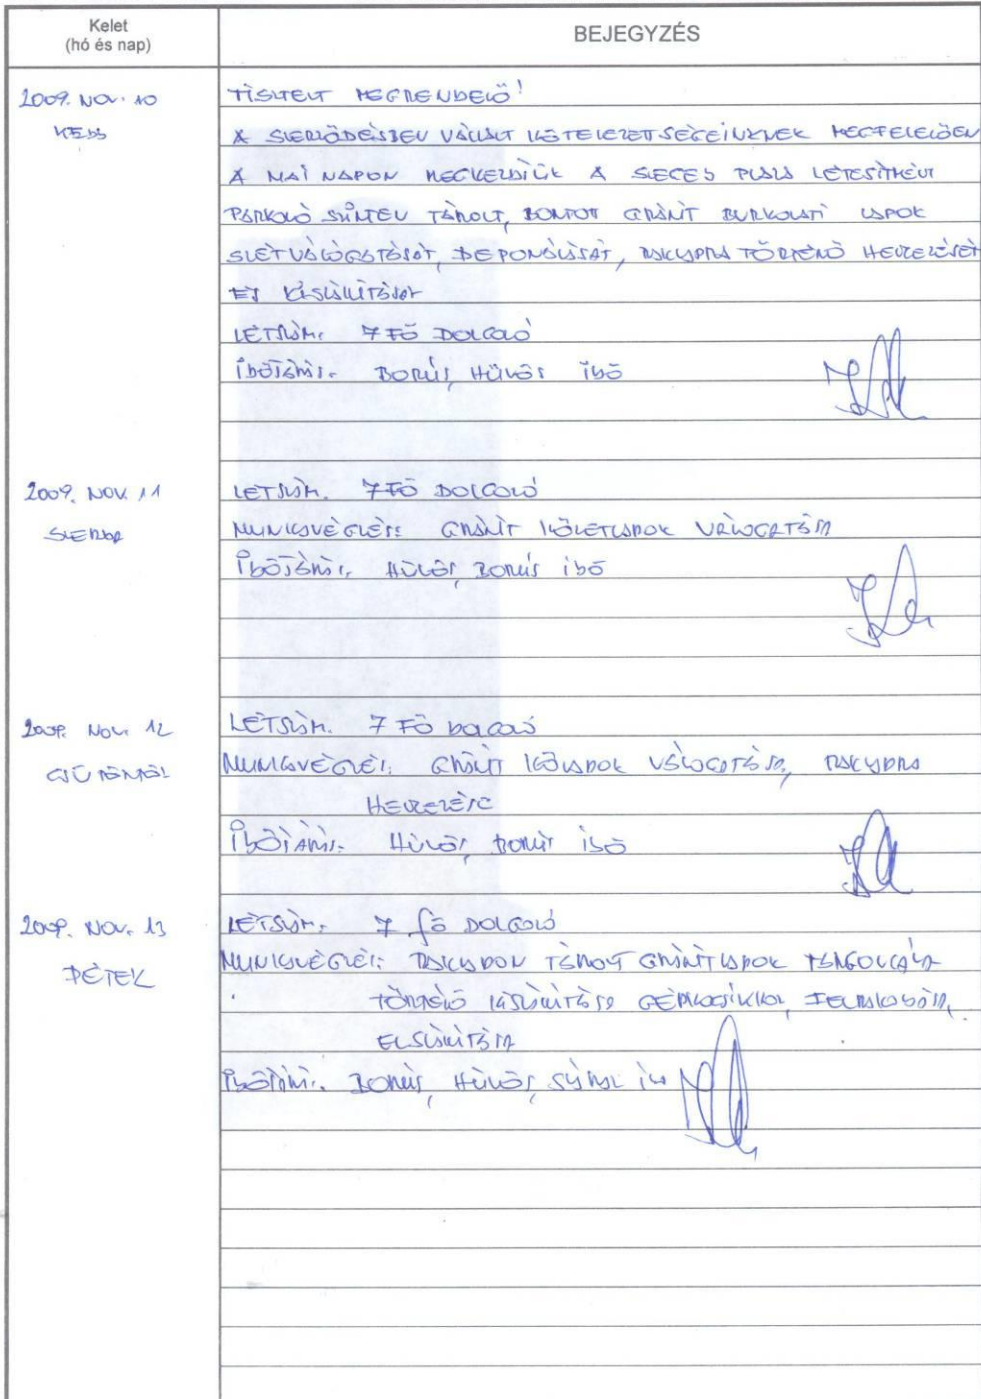 Kelet
(hó és nap)
BEJEGYZÉS
2009. NOV. 10
KEDD
TISZTELT MEGRENDELŐ!
A SZERZŐDÉSBEN VÁLLALT KÖTELEZETTSÉGEINKNEK MEGFELELŐEN
A MAI NAPON MEGKEZDJÜK A PLAZA LÉTESÍTMÉNY
PARKOLÓ SZINTEN TÁROLT, BONTOTT GRÁNIT BURKOLATI LAPOK
SZÉTVÁLOGATÁSÁT, DEPONÁLÁSÁT, RAKLAPRA TÖRTÉNŐ HELYEZÉSÉT
ÉS KISZÁLLÍTÁSÁT
LÉTSZÁM: 7 FŐ DOLGOZÓ
IDŐJÁRÁS: BORÚS, HŰVÖS IDŐ
2009. NOV. 11
SZERDA
LÉTSZÁM: 7 FŐ DOLGOZÓ
MUNKAVÉGZÉS: GRÁNIT KŐLAPOK VÁLOGATÁSA
IDŐJÁRÁS: HŰVÖS, BORÚS IDŐ
2009. NOV. 12
CSÜTÖRTÖK
LÉTSZÁM: 7 FŐ DOLGOZÓ
MUNKAVÉGZÉS: GRÁNIT KŐLAPOK VÁLOGATÁSA, RAKLAPRA
HELYEZÉSE
IDŐJÁRÁS: HŰVÖS, BORÚS IDŐ
2009. NOV. 13
PÉNTEK
LÉTSZÁM: 7 fő DOLGOZÓ
MUNKAVÉGZÉS: RAKLAPON TÁROLT GRÁNITLAPOK
TÖRTÉNŐ KISZÁLLÍTÁSA FELRAKODÁSA,
ELSZÁLLÍTÁSA
IDŐJÁRÁS: BORÚS, HŰVÖS, SZÁRAZ IDŐ